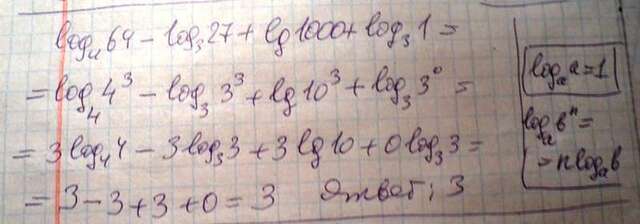 log₄64 − log₃27 + lg1000 + log₃1 =
= log₄4³ − log₃3³ + lg10³ + log₃3⁰ =
= 3log₄4 − 3log₃3 + 3lg10 + 0log₃3 =
= 3 − 3 + 3 + 0 = 3 Ответ: 3
logₐa = 1
logₐbⁿ =
= nlogₐb